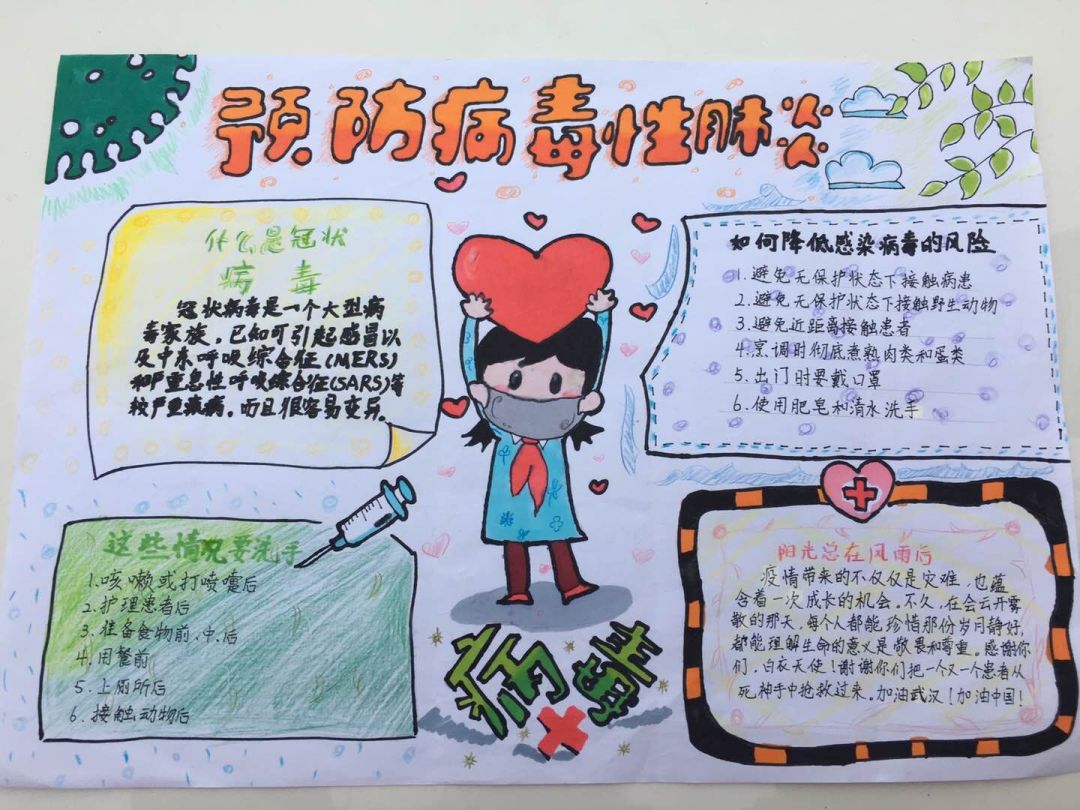 预防病毒性肺炎
什么是冠状
病毒
冠状病毒是一个大型病
毒家族，已知可引起感冒以
及中东呼吸综合征(MERS)
和严重急性呼吸综合征(SARS)等
较严重疾病。而且很容易变异。
如何降低感染病毒的风险
1.避免无保护状态下接触病患
2.避免无保护状态下接触野生动物
3.避免近距离接触患者
4.烹调时彻底煮熟肉类和蛋类
5.出门时要戴口罩
6.使用肥皂和清水洗手
这些情况要洗手
1.咳嗽或打喷嚏后
2.护理患者后
3.准备食物前、中、后
4.用餐前
5.上厕所后
6.接触动物后
阳光总在风雨后
疫情带来的不仅仅是灾难，也蕴
含着一次成长的机会。不久，在会云开雾
散的那天，每个人都能珍惜那份岁月静好，
都能理解生命的意义是敬畏和尊重。感谢你
们，白衣天使！谢谢你们把一个又一个患者从
死神手中抢救过来。加油武汉！加油中国！
病毒